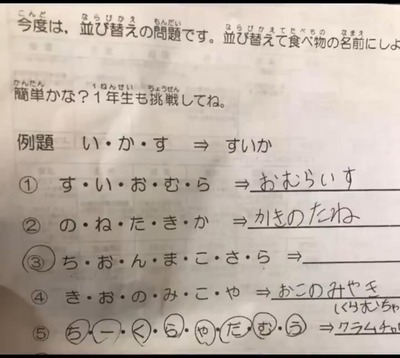 こんど ならびかえ もんだい ならびかえてたべもの なまえ
今度は，並び替えの問題です。並び替えて食べ物の名前にしよ
かんたん 1ねんせい ちょうせん
簡単かな？１年生も挑戦してね。
例題 い・か・す ⇒ すいか
① す・い・お・む・ら ⇒おむらいす
② の・ね・た・き・か ⇒かきのたね
③ ち・お・ん・ま・こ・さ・ら ⇒
④ き・お・の・み・こ・や ⇒おこのみやき
くらむちゃ
⑤ ち・ー・く・ら・や・だ・む・う ⇒クラムチャ